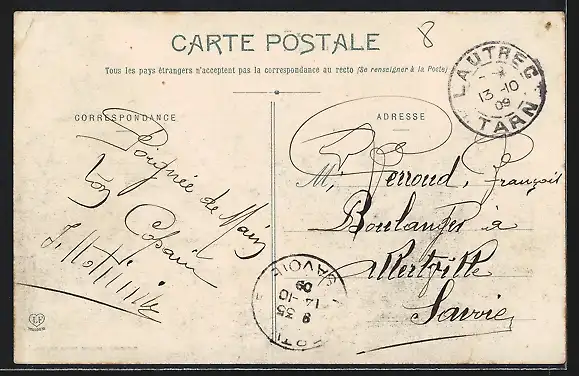 CARTE POSTALE
8
Tous les pays étrangers n'acceptent pas la correspondance au recto (Se renseigner à la Poste)
LAUTREC
13-10
09
TARN
CORRESPONDANCE
ADRESSE
Poignée de Main
ton Copain
Mr Perroud, François
Boulanger à
Albertville
Savoie
SAVOIE
8 35
14-10
09